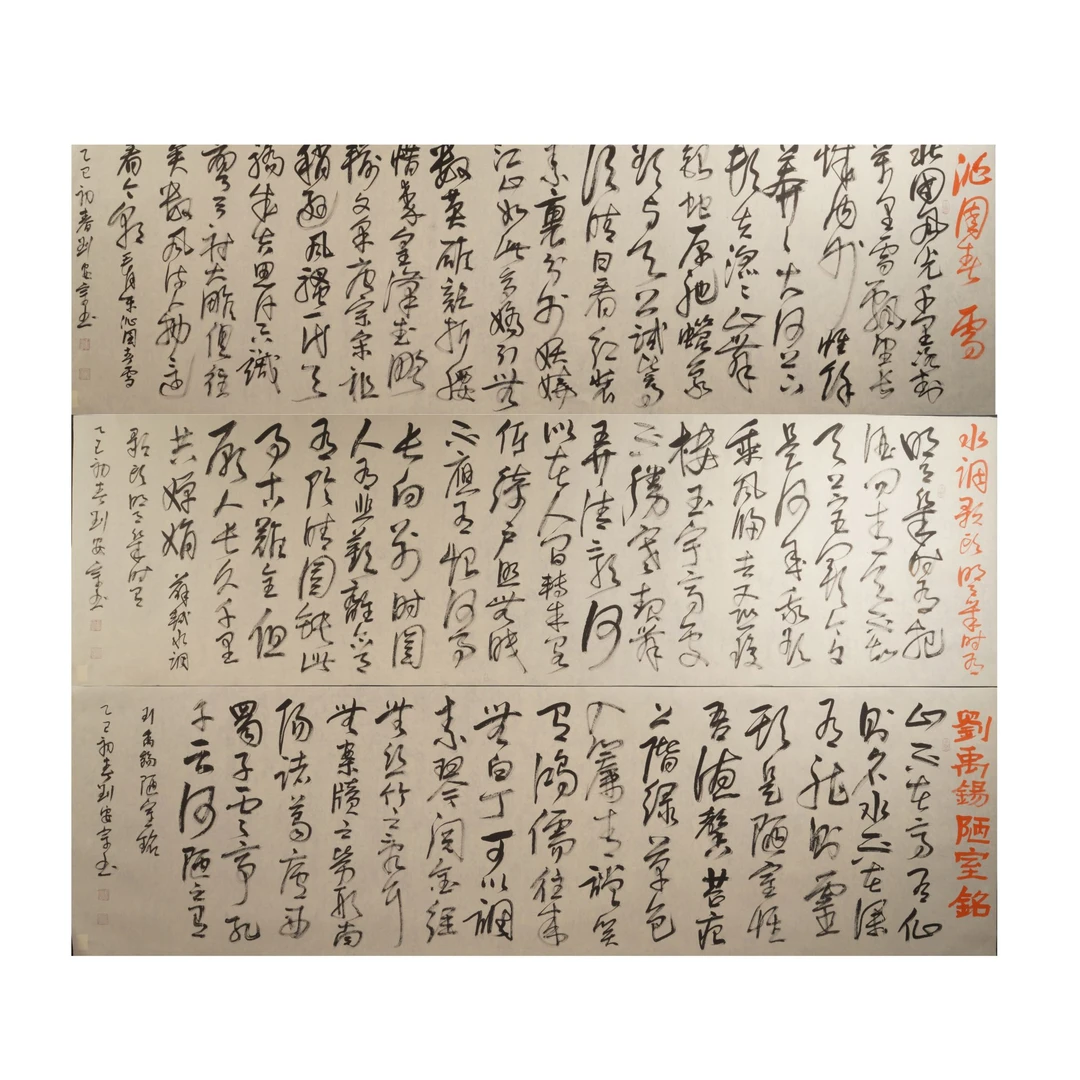 沁園春 雪
北國風光千里冰封
萬里雪飄望長
城內外 惟餘
莽々大河上下
頓失滔々山舞
銀蛇原馳蠟象
欲與天公試比高
須晴日看紅裝
素裹分外妖嬈
江山如此多嬌引無
數英雄競折腰
惜秦皇漢武略
輸文采唐宗宋祖
稍遜風騷一代天
驕成吉思汗只識
彎弓射大雕俱往
矣數風流人物還
看今朝 毛澤東沁園春雪
乙巳初春劉安宗書
水調歌頭 明月幾時有
明月幾時有把
酒問青天不知
天上宮闕今夕
是何年我欲
乘風歸去又恐瓊
樓玉宇高處
不勝寒起舞
弄清影何
似在人間轉朱閣
低綺戶照無眠
不應有恨何事
長向別時圓
人有悲歡離合月
有陰晴圓缺此
事古難全但
願人長久千里
共嬋娟 蘇軾水調
歌頭明月幾時有
乙巳初春劉安宗書
劉禹錫陋室銘
山不在高有仙
則名水不在深
有龍則靈
斯是陋室惟
吾德馨苔痕
上階綠草色
入簾青談笑
有鴻儒往來
無白丁可以調
素琴閱金經
無絲竹之亂耳
無案牘之勞形南
陽諸葛廬西
蜀子雲亭孔
子云何陋之有
劉禹錫陋室銘
乙巳初春劉安宗書